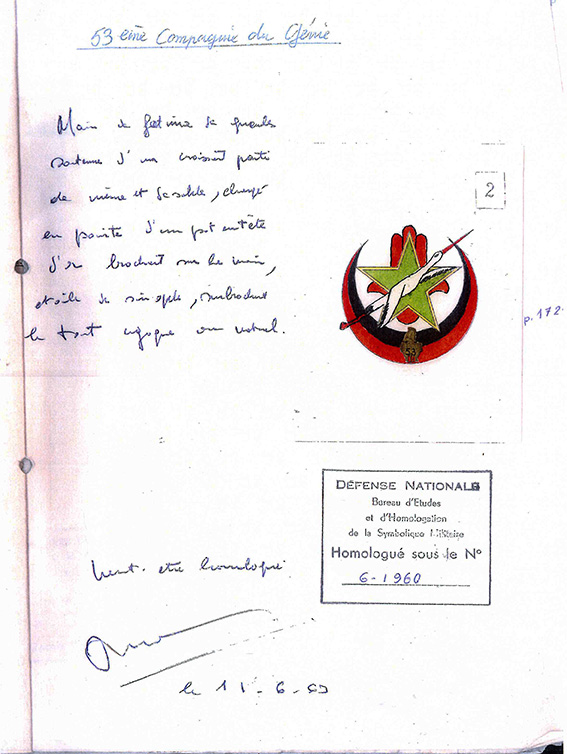 53 ème Compagnie du Génie
Main de fatma de gueule
soutenue d'un croissant parti
de même et de sable, chargé
en pointe d'un pot en tête
d'or brochant sur la main,
étoile de sinople, surbrochant
le tout cigogne au naturel.
2
53
p. 172.
DÉFENSE NATIONALE
Bureau d'Etudes
et d'Homologation
de la Symbolique Militaire
Homologué sous le N°
6-1960
Peut être homologué
le 11-6-